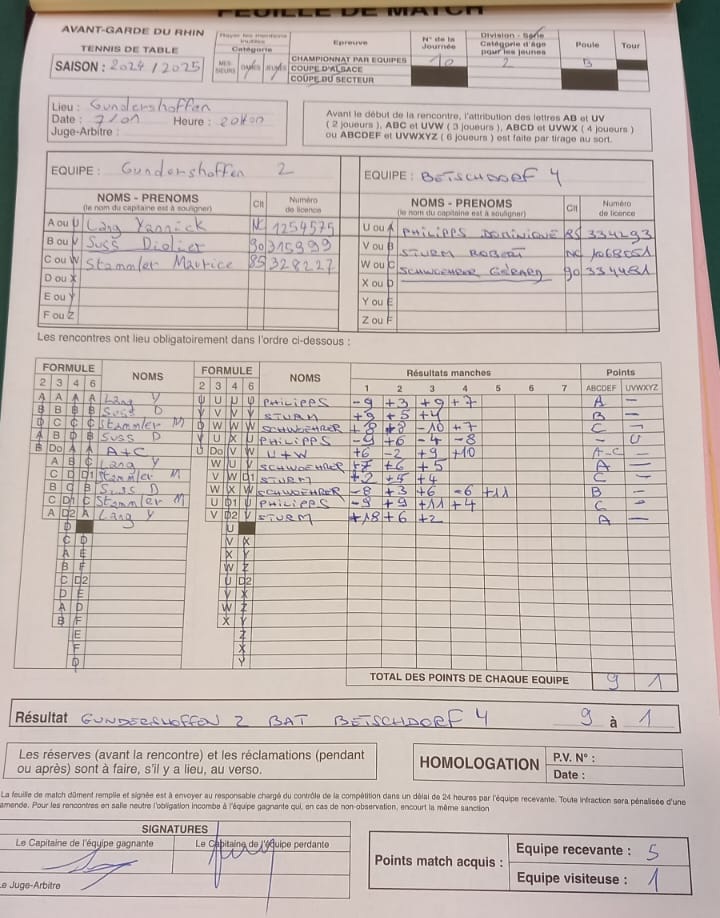 FEUILLE DE MATCH
AVANT-GARDE DU RHIN
TENNIS DE TABLE
SAISON : 2024 / 2025
Catégorie
MES-SIEURS
Epreuve
CHAMPIONNAT PAR EQUIPES
COUPE D'ALSACE
COUPE DU SECTEUR
N° de la Journée
10
Division - Série
Catégorie d'âge
pour les jeunes
2
Poule
B
Tour
Lieu : Gundershoffen
Date : 7/01 Heure : 20H00
Juge-Arbitre :
Avant le début de la rencontre, l'attribution des lettres AB et UV
( 2 joueurs ), ABC et UVW ( 3 joueurs ), ABCD et UVWX ( 4 joueurs )
ou ABCDEF et UVWXYZ ( 6 joueurs ) est faite par tirage au sort.
EQUIPE : Gundershoffen 2
NOMS - PRENOMS
(le nom du capitaine est à souligner)
Clt
Numéro de licence
A ou U Lang Yannick NC 1254575
B ou V Suss Didier 90 315999
C ou W Stammler Maurice 85 328227
D ou X
E ou Y
F ou Z
EQUIPE : BETSCHDORF 4
NOMS - PRENOMS
(le nom du capitaine est à souligner)
Clt
Numéro de licence
U ou A PHILIPPS DOMINIQUE 85 334293
V ou B STURM ROBERT NC 1068051
W ou C SCHWOEHRER GERARD 90 334481
X ou D
Y ou E
Z ou F
Les rencontres ont lieu obligatoirement dans l'ordre ci-dessous :
FORMULE NOMS FORMULE NOMS Résultats manches Points
2 3 4 6 2 3 4 6 1 2 3 4 5 6 7 ABCDEF UVWXYZ
A A A A Lang Y U U U U PHILIPPS -9 +3 +9 +7 A —
B B B B Suss D V V V V STURM +9 +5 +4 B —
D C C C Stammler M W W W SCHWOEHRER +8 +8 -10 +7 C —
A B D B Suss D V U X U PHILIPPS -9 +6 -4 -8 — U
B Do A A A+C U Do V V U+W +6 -2 +9 +10 A-C —
A B C Lang Y W U V SCHWOEHRER +7 +6 +5 A —
C D D1 Stammler M V W D1 STURM +2 +5 +4 C —
B C B Suss D W X W SCHWOEHRER -8 +3 +6 -6 +11 B —
C D1 C Stammler M U D1 U PHILIPPS -9 +9 +11 +4 C —
A D2 A Lang Y V D2 V STURM +18 +6 +2 A —
D U
C D V X
A E X Y
B F W Z
C D2 U D2
D E V X
A D W Z
B F X Y
E Z
F X
D Y
TOTAL DES POINTS DE CHAQUE EQUIPE 9 1
Résultat GUNDERSHOFFEN 2 BAT BETSCHDORF 4 9 à 1
Les réserves (avant la rencontre) et les réclamations (pendant
ou après) sont à faire, s'il y a lieu, au verso.
HOMOLOGATION
P.V. N° :
Date :
La feuille de match dûment remplie et signée est à envoyer au responsable chargé du contrôle de la compétition dans un délai de 24 heures par l'équipe recevante. Toute infraction sera pénalisée d'une
amende. Pour les rencontres en salle neutre l'obligation incombe à l'équipe gagnante qui, en cas de non-observation, encourt la même sanction
SIGNATURES
Le Capitaine de l'équipe gagnante
Le Capitaine de l'équipe perdante
Le Juge-Arbitre
Points match acquis :
Equipe recevante : 5
Equipe visiteuse : 1